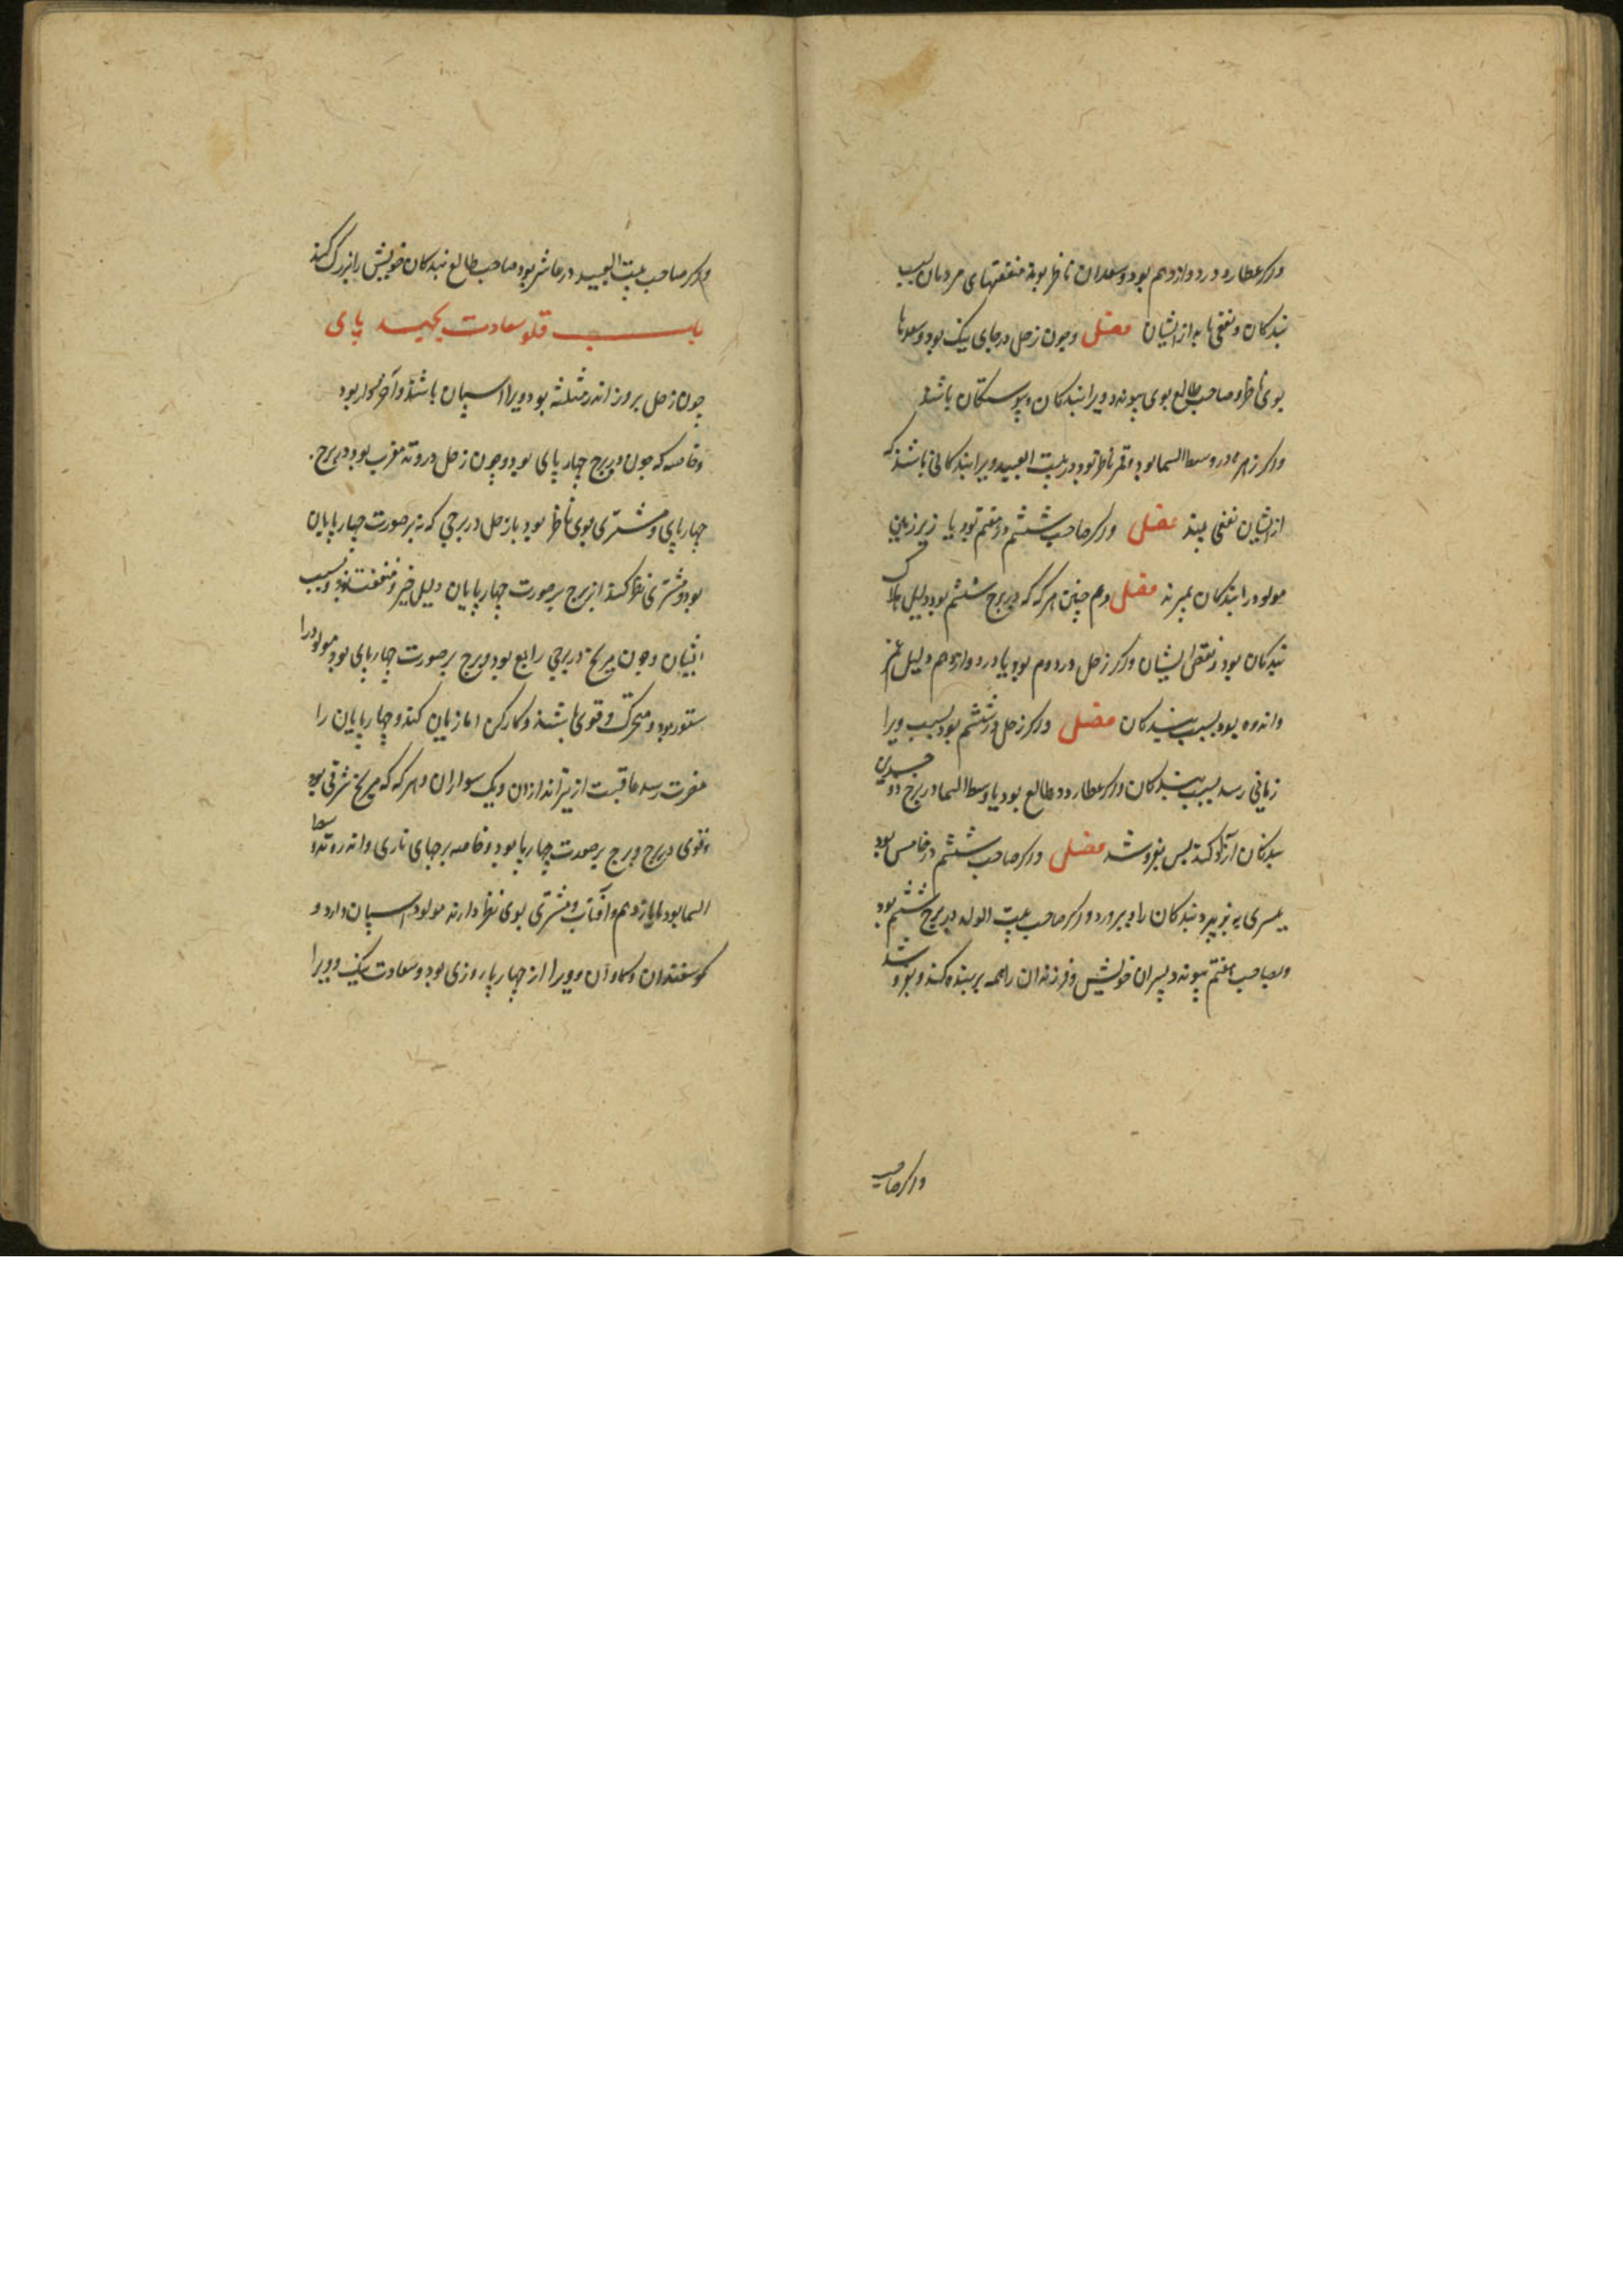 واکر عطارد در دوازدهم بود و سعدان ناظر بوند منفعتهای مردمان بسبب
بندکان و نفعی با به از ایشان فصل وچون زحل در جای نیک بود و سعدها
بوی ناظر و صاحب طالع بوی پیوندد ویرا بندکان و پیوستکان باشند
واکر زهره در وسط السما بود و قمر ناظر بود در بیت العبید ویرا بندکانی باشند که
از ایشان نفعی بیند فصل واکر صاحب ششم در هفتم بود یا زیر زمین
مولود را بندکان بمیرند فصل وهم چنین هر که که در برج ششم بود دلیل
بندکان بود و نقص ایشان واکر زحل در دوم بود یا در دوازدهم دلیل غم
واندوه بود بسبب بندکان فصل واکر زحل در ششم بود بسبب ویرا
زیانی رسد بسبب بندکان واکر عطارد در طالع بود یا وسط السما در برج دو جسدین
بندکان آزاد کند پس بفروشد فصل واکر صاحب ششم در خامس بود
بندکان را بپرورد واکر صاحب بیت الولد در برج ششم بود
وبصاحب هفتم پیوندد پسران خویش و فرزندان را همه بر بنده کند و بفروشد
واکر صاحب
واکر صاحب بیت العبید در عاشر بود صاحب طالع بندکان خویش را بزرک کند
باب سعادت بجهید پای
چون زحل بروز اندر مثلثه بود ویرا اسپان باشند و آخر بود
وخاصه که چون در برج چهار پای بود وچون زحل در وتد مغرب بود در برج
چهارپای و مشتری بوی ناظر بود باز زحل در برجی که نه بر صورت چهارپایان
بود و مشتری نظر کند از برج بر صورت چهارپایان دلیل خیر و منفعت بود بسبب
ایشان وچون مریخ در برجی رابع بود و برج بر صورت چهارپای بود مولود را
ستور بود و متحرک و قوی باشند و کارکن اما زیان کند و چهارپایان را
مضرت رسد عاقبت از تیراندازان و سواران و هر که که مریخ شرقی بود
وقوی در برج و برج بر صورت چهارپا بود و خاصه برجهای ناری و اندر وتد وسط
السما بود یا یازدهم و آفتاب و مشتری بوی نظر دارند مولود اسپان دارد و
کوسفندان و کاوان و ویرا از چهارپا روزی بود و سعادت نیک و ویرا